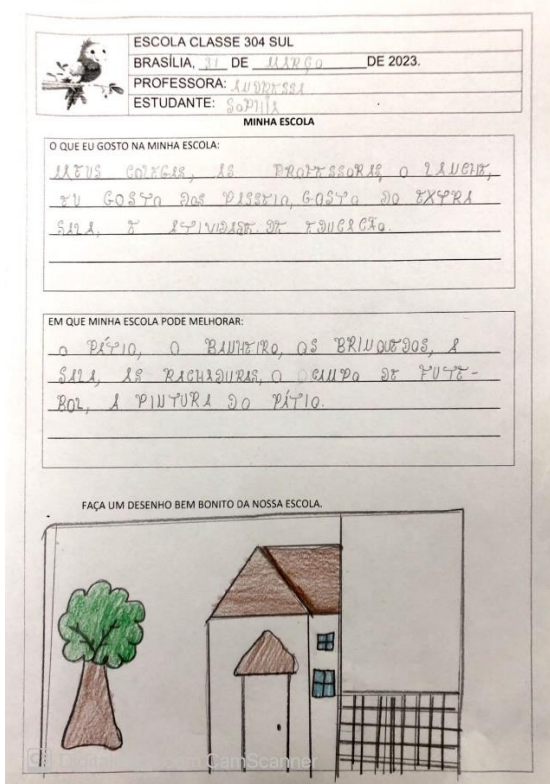 ESCOLA CLASSE 304 SUL
BRASÍLIA, 31 DE MARÇO DE 2023.
PROFESSORA: ANDRESSA
ESTUDANTE: SOPHIA
MINHA ESCOLA
O QUE EU GOSTO NA MINHA ESCOLA:
MEUS COLEGAS, AS PROFESSORAS, O LANCHE,
EU GOSTO DOS PASSEIO, GOSTO DO EXTRA
SALA, E ATIVIDADE DE EDUCAÇÃO.
EM QUE MINHA ESCOLA PODE MELHORAR:
O PÁTIO, O BANHEIRO, OS BRINQUEDOS, A
SALA, AS RACHADURAS, O CAMPO DE FUTE-
BOL, A PINTURA DO PÁTIO.
FAÇA UM DESENHO BEM BONITO DA NOSSA ESCOLA.
CamScanner